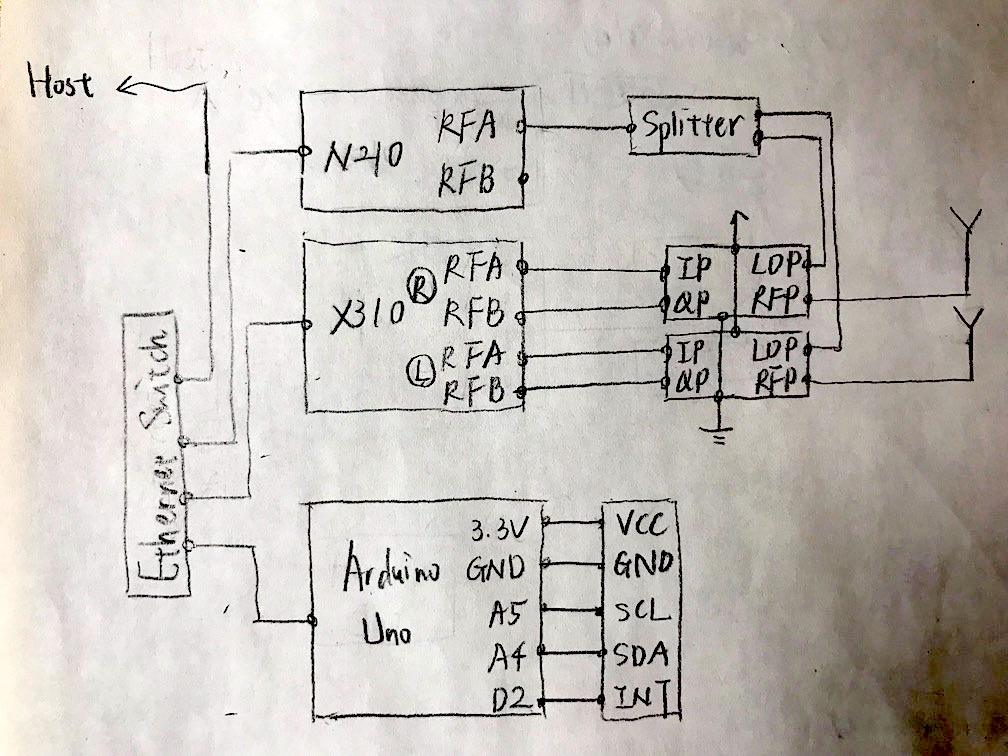 Host
N210
RFA
RFB
Splitter
X310
R
RFA
RFB
L
RFA
RFB
IP
QP
LOP
RFP
IP
QP
LOP
RFP
Ethernet Switch
Arduino
Uno
3.3V
GND
A5
A4
D2
VCC
GND
SCL
SDA
INT